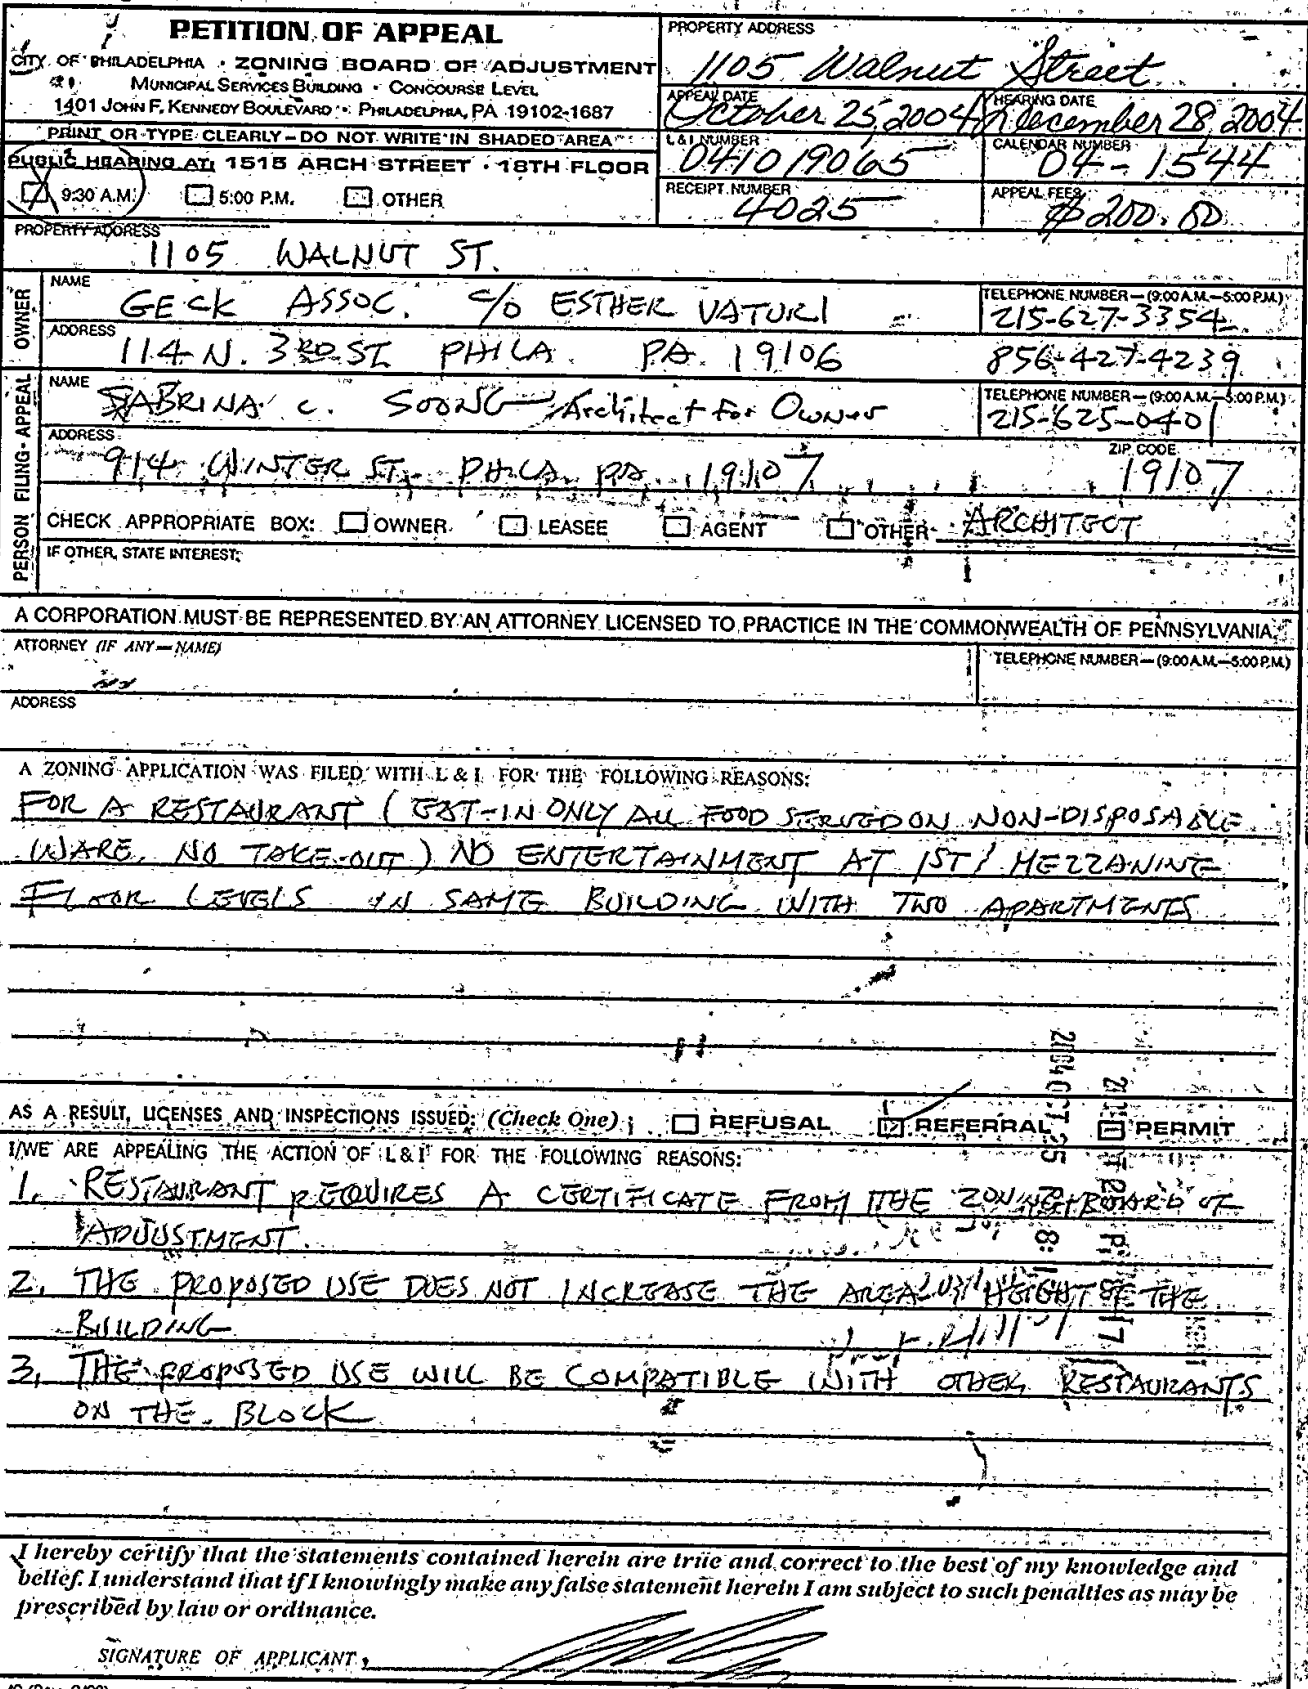 PETITION OF APPEAL
CITY OF PHILADELPHIA · ZONING BOARD OF ADJUSTMENT
MUNICIPAL SERVICES BUILDING · CONCOURSE LEVEL
1401 JOHN F. KENNEDY BOULEVARD · PHILADELPHIA, PA 19102-1687
PRINT OR TYPE CLEARLY – DO NOT WRITE IN SHADED AREA
PUBLIC HEARING AT: 1515 ARCH STREET · 18TH FLOOR
9:30 A.M. 5:00 P.M. OTHER
PROPERTY ADDRESS
1105 Walnut Street
APPEAL DATE
October 25, 2004
HEARING DATE
December 28, 2004
L & I NUMBER
041019065
CALENDAR NUMBER
04-1544
RECEIPT NUMBER
4025
APPEAL FEES
$200.00
PROPERTY ADDRESS
1105 WALNUT ST.
OWNER
NAME
GECK ASSOC. c/o ESTHER VATURI
TELEPHONE NUMBER — (9:00 A.M.—5:00 P.M.)
215-627-3354
ADDRESS
114 N. 3RD ST PHILA. PA. 19106
856-427-4239
PERSON FILING APPEAL
NAME
SABRINA C. SOONG, Architect For Owner
TELEPHONE NUMBER — (9:00 A.M.—5:00 P.M.)
215-625-0401
ADDRESS
914 WINTER ST. PHILA. PA. 19107
ZIP CODE
19107
CHECK APPROPRIATE BOX: OWNER LEASEE AGENT OTHER ARCHITECT
IF OTHER, STATE INTEREST:
A CORPORATION MUST BE REPRESENTED BY AN ATTORNEY LICENSED TO PRACTICE IN THE COMMONWEALTH OF PENNSYLVANIA.
ATTORNEY (IF ANY — NAME)
TELEPHONE NUMBER — (9:00 A.M.—5:00 P.M.)
ADDRESS
A ZONING APPLICATION WAS FILED WITH L & I FOR THE FOLLOWING REASONS:
FOR A RESTAURANT (EAT-IN ONLY ALL FOOD SERVED ON NON-DISPOSABLE
WARE. NO TAKE-OUT) NO ENTERTAINMENT AT 1ST / MEZZANINE
FLOOR LEVELS IN SAME BUILDING WITH TWO APARTMENTS
2004 OCT 25
AS A RESULT, LICENSES AND INSPECTIONS ISSUED: (Check One) REFUSAL REFERRAL PERMIT
I/WE ARE APPEALING THE ACTION OF L & I FOR THE FOLLOWING REASONS:
1. RESTAURANT REQUIRES A CERTIFICATE FROM THE ZONING BOARD OF
ADJUSTMENT.
2. THE PROPOSED USE DOES NOT INCREASE THE AREA HEIGHT OF THE
BUILDING
3. THE PROPOSED USE WILL BE COMPATIBLE WITH OTHER RESTAURANTS
ON THE BLOCK
I hereby certify that the statements contained herein are true and correct to the best of my knowledge and
belief. I understand that if I knowingly make any false statement herein I am subject to such penalties as may be
prescribed by law or ordinance.
SIGNATURE OF APPLICANT: